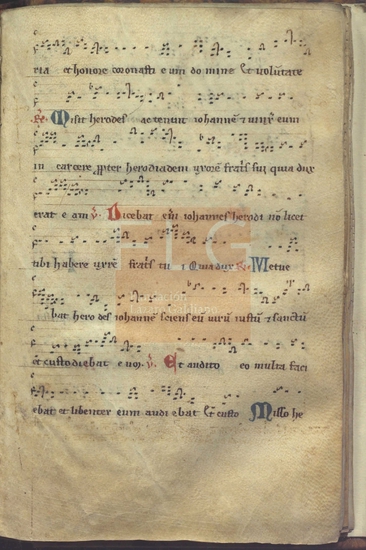 ria et honore coronasti eum domine Et volūtate
R. Misit herodes ac tenuit iohannē et eum
in carcere ꝓpter herodiadem uxorē fratris sui quia dux
erat eam V. Dicebat eni iohannes herodi nō licet
tibi habere uxorē fratris tui Quia dux R. Metue
bat herodes iohannē sciens eū uirū iustū et sanctū
et custodiebat eum V. Et audito eo multa faci
ebat et libenter eum audiebat Et custo Misso he